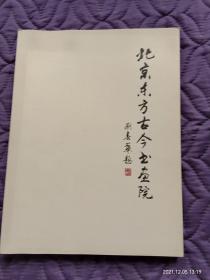 北京东方古今书画院
2021.12.05 13:21